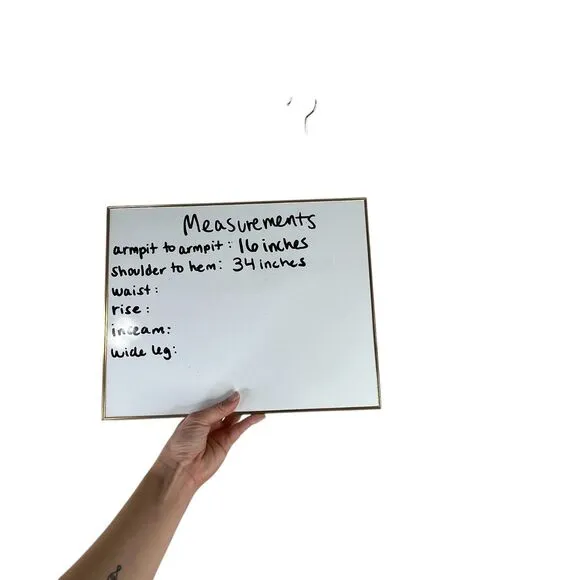 Measurements
armpit to armpit: 16 inches
shoulder to hem: 34 inches
waist:
rise:
inseam:
wide leg: